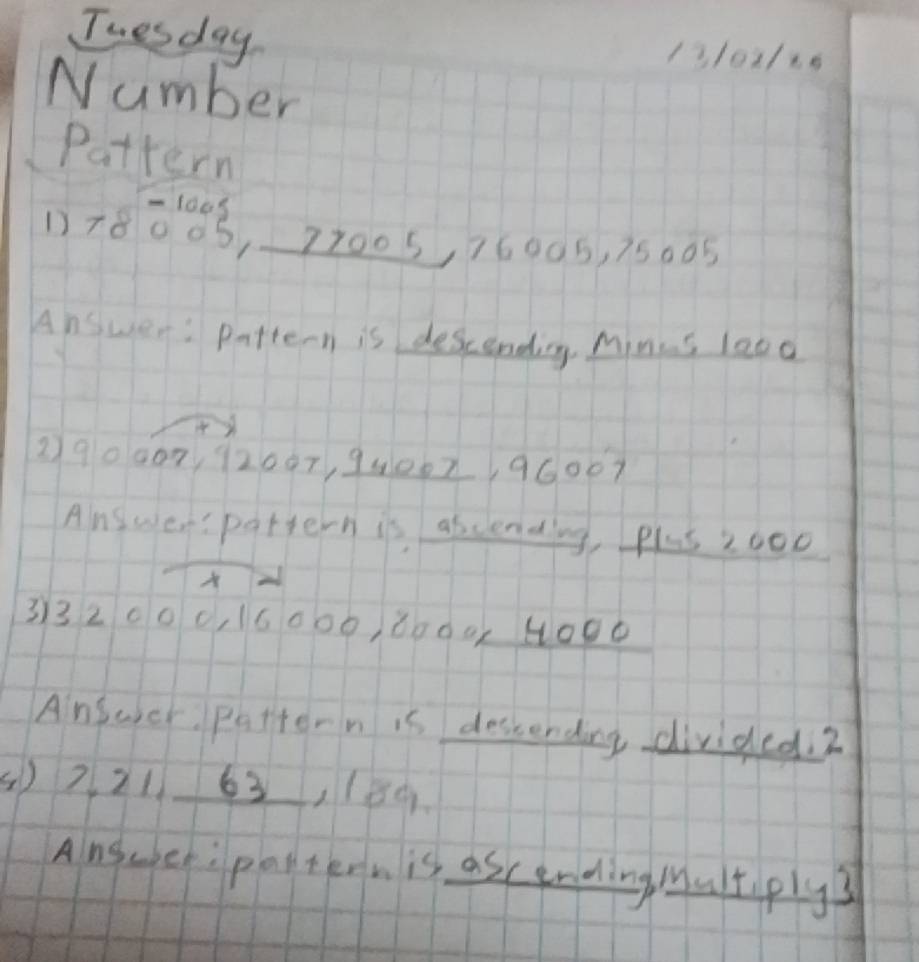 Tuesday
13/02/26
Number
Pattern
-1005
1) 78005, 77005, 76005, 75005
Answer: pattern is descending. Minus 1000
+
2) 90007, 92007, 94007, 96007
Answer: pattern is ascending, Plus 2000
3) 32000, 16000, 8000, 4000
Answer. Pattern is descending divided. 2
4) 7, 21, 63, 189.
Answer: pattern is ascending Multiply 3